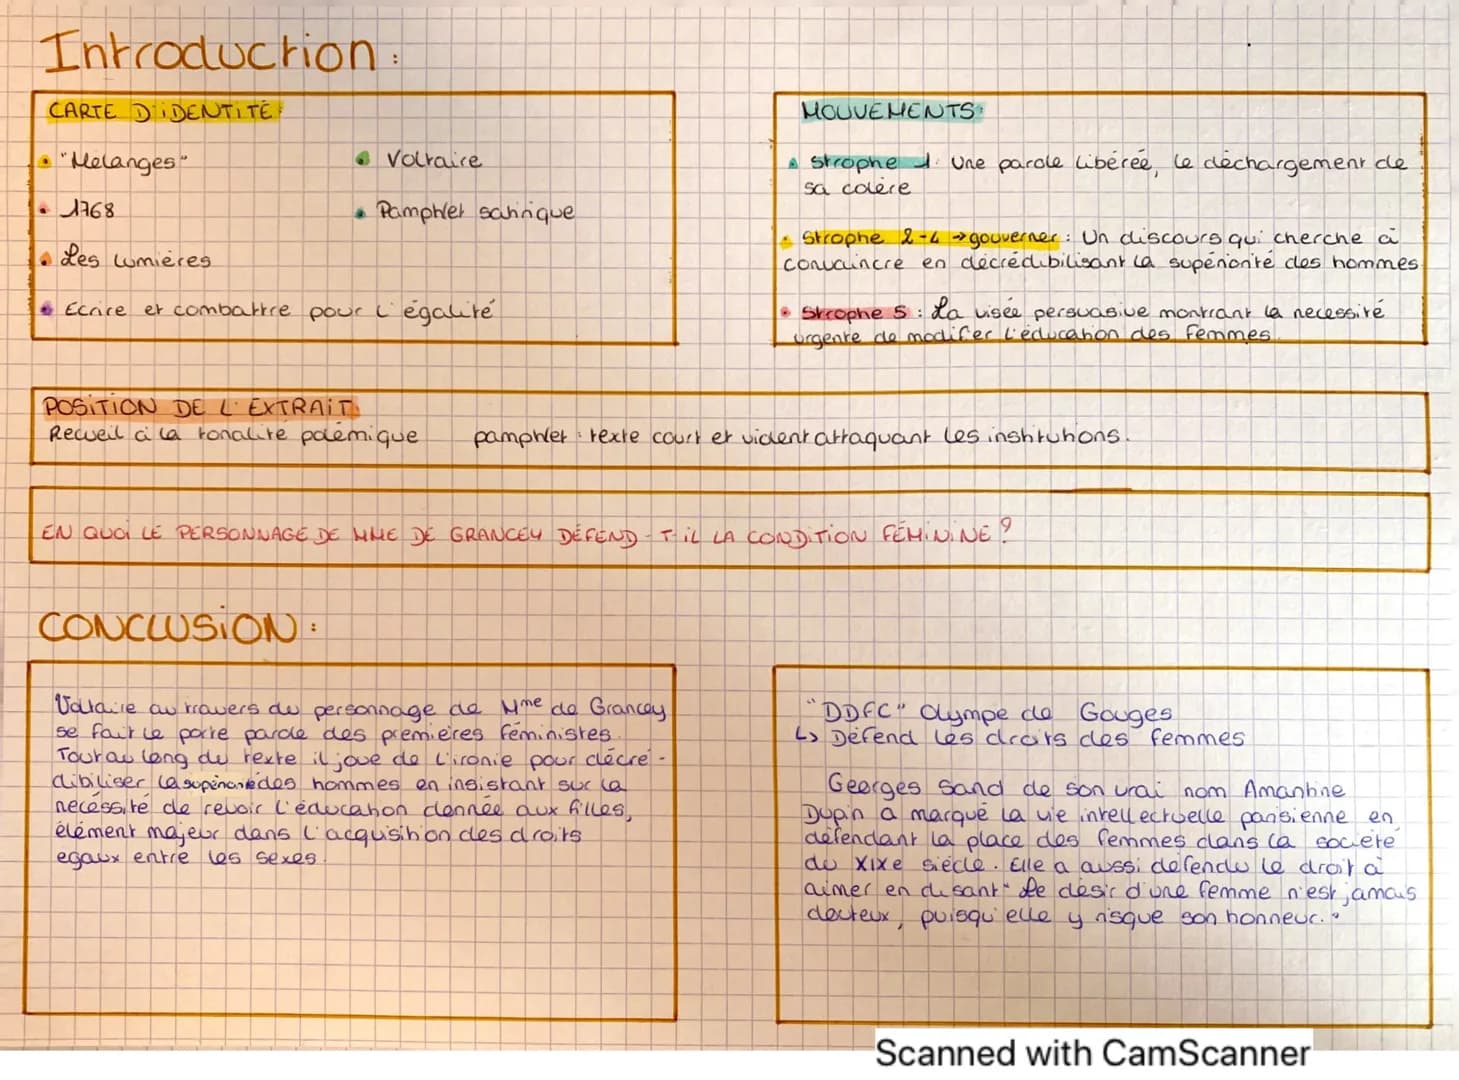 Introduction :
CARTE D'IDENTITÉ :
"Melanges"
Voltaire
1768
Pamphlet satirique
Les lumières
Ecrire et combattre pour l'égalité
MOUVEMENTS :
Strophe 1 : Une parole libérée, le déchargement de
sa colère
Strophe 2-4 → gouverner : Un discours qui cherche à
convaincre en décrédibilisant la supériorité des hommes
Strophe 5 : La visée persuasive montrant la necessité
urgente de modifer l'éducation des femmes.
POSITION DE L'EXTRAIT
Recueil à la tonalité polémique pamphlet : texte court et violent attaquant les institutions.
EN QUOI LE PERSONNAGE DE MME DE GRANCEY DÉFEND-T-IL LA CONDITION FÉMININE ?
CONCLUSION :
Voltaire au travers du personnage de Mme de Grancey
se fait le porte parole des premières féministes.
Tout au long du texte il joue de l'ironie pour décré-
dibiliser la supériorité des hommes en insistant sur la
necéssité de revoir l'éducation donnée aux filles,
élément majeur dans l'acquisition des droits
egaux entre les sexes.
"DDFC" Olympe de Gouges
↳ Défend les droits des femmes
Georges Sand de son vrai nom Amantine
Dupin a marqué la vie intellectuelle parisienne en
défendant la place des femmes dans la société
du XIXe siècle. Elle a aussi défendu le droit à
aimer en disant "Le désir d'une femme n'est jamais
douteux, puisqu'elle y risque son honneur."
Scanned with CamScanner